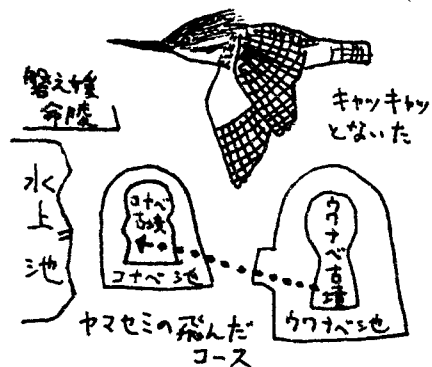 磐之媛
命陵
キャッキャッ
とないた
水上池
コナベ
古墳
コナベ池
ウワナベ古墳
ウワナベ池
ヤマセミの飛んだ
コース